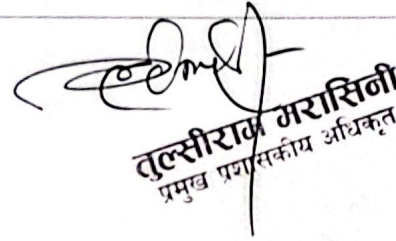 तुल्सीराम मरासिनी
प्रमुख प्रशासकीय अधिकृत